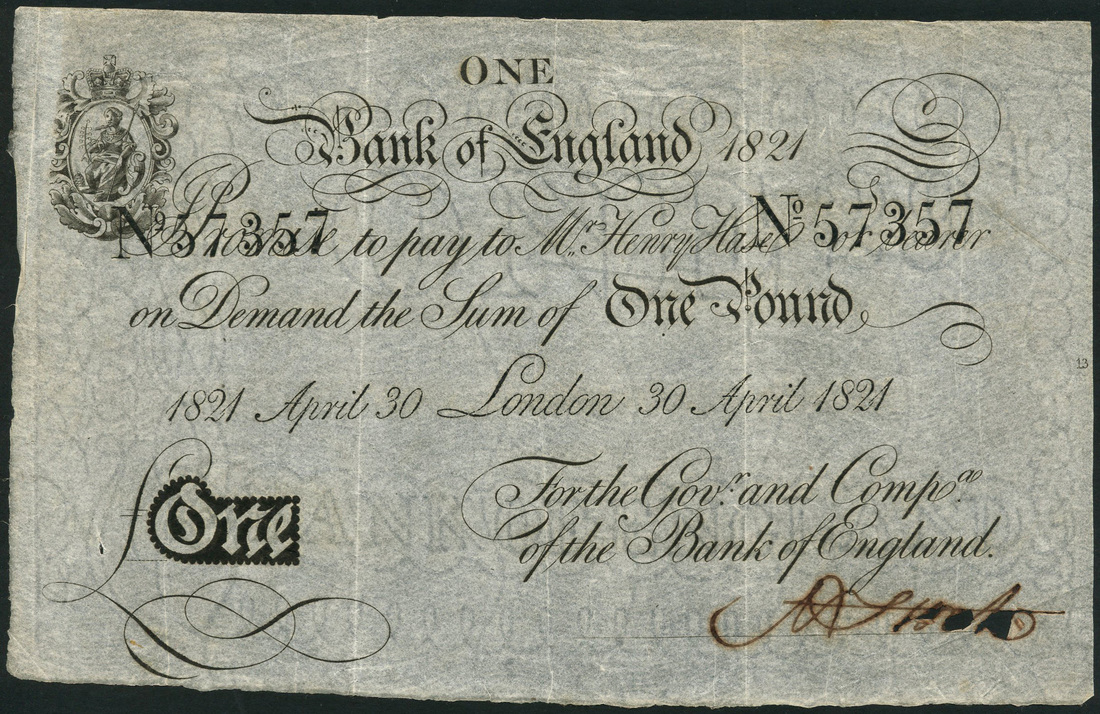 ONE
Bank of England 1821
Nº 57357 Nº 57357
Promise to pay to Mr. Henry Hase or bearer
on Demand the Sum of One Pound
1821 April 30 London 30 April 1821
13
For the Govr. and Compa.
£One of the Bank of England.